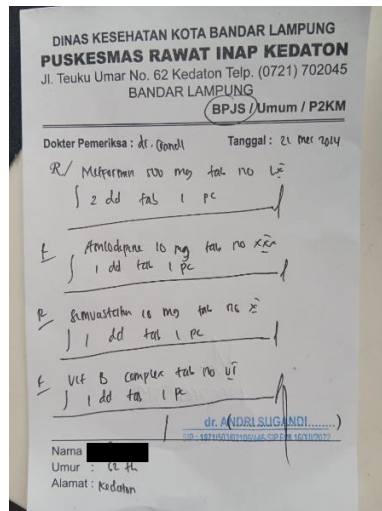 DINAS KESEHATAN KOTA BANDAR LAMPUNG
PUSKESMAS RAWAT INAP KEDATON
Jl. Teuku Umar No. 62 Kedaton Telp. (0721) 702045
BANDAR LAMPUNG
BPJS / Umum / P2KM
Dokter Pemeriksa : dr. Tanggal : 21
R/ Metformin 500 mg tab no
∫ 2 dd tab 1 pc
R/ Amlodipine 10 mg tab no XXX
∫ 1 dd tab 1 pc
R/ Simvastatin 10 mg tab no X
∫ 1 dd tab 1 pc
R/ Vit B complex tab no VI
∫ 1 dd tab 1 pc
dr. ANDRI SUGANDI
Nama
Umur : 62 th
Alamat : Kedaton